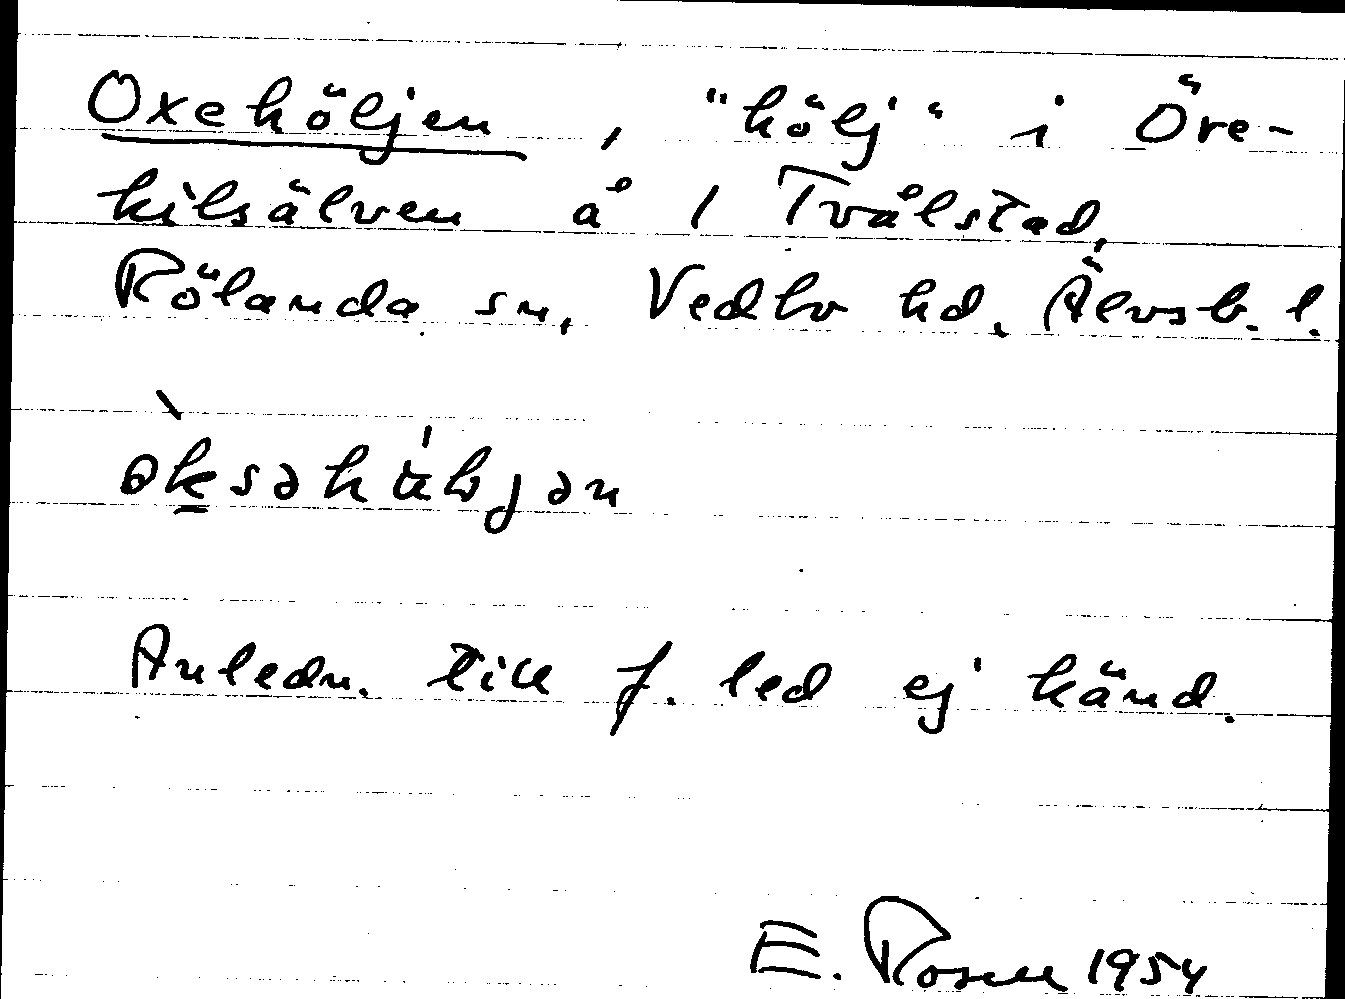 Oxehöljen, "hölj" i Öre-
kilsälven å 1 Tvålstad,
Rölanda sn, Vedbo hd, Älvsb. l.
Anledn. till f. led ej känd.
E. Rosell 1954